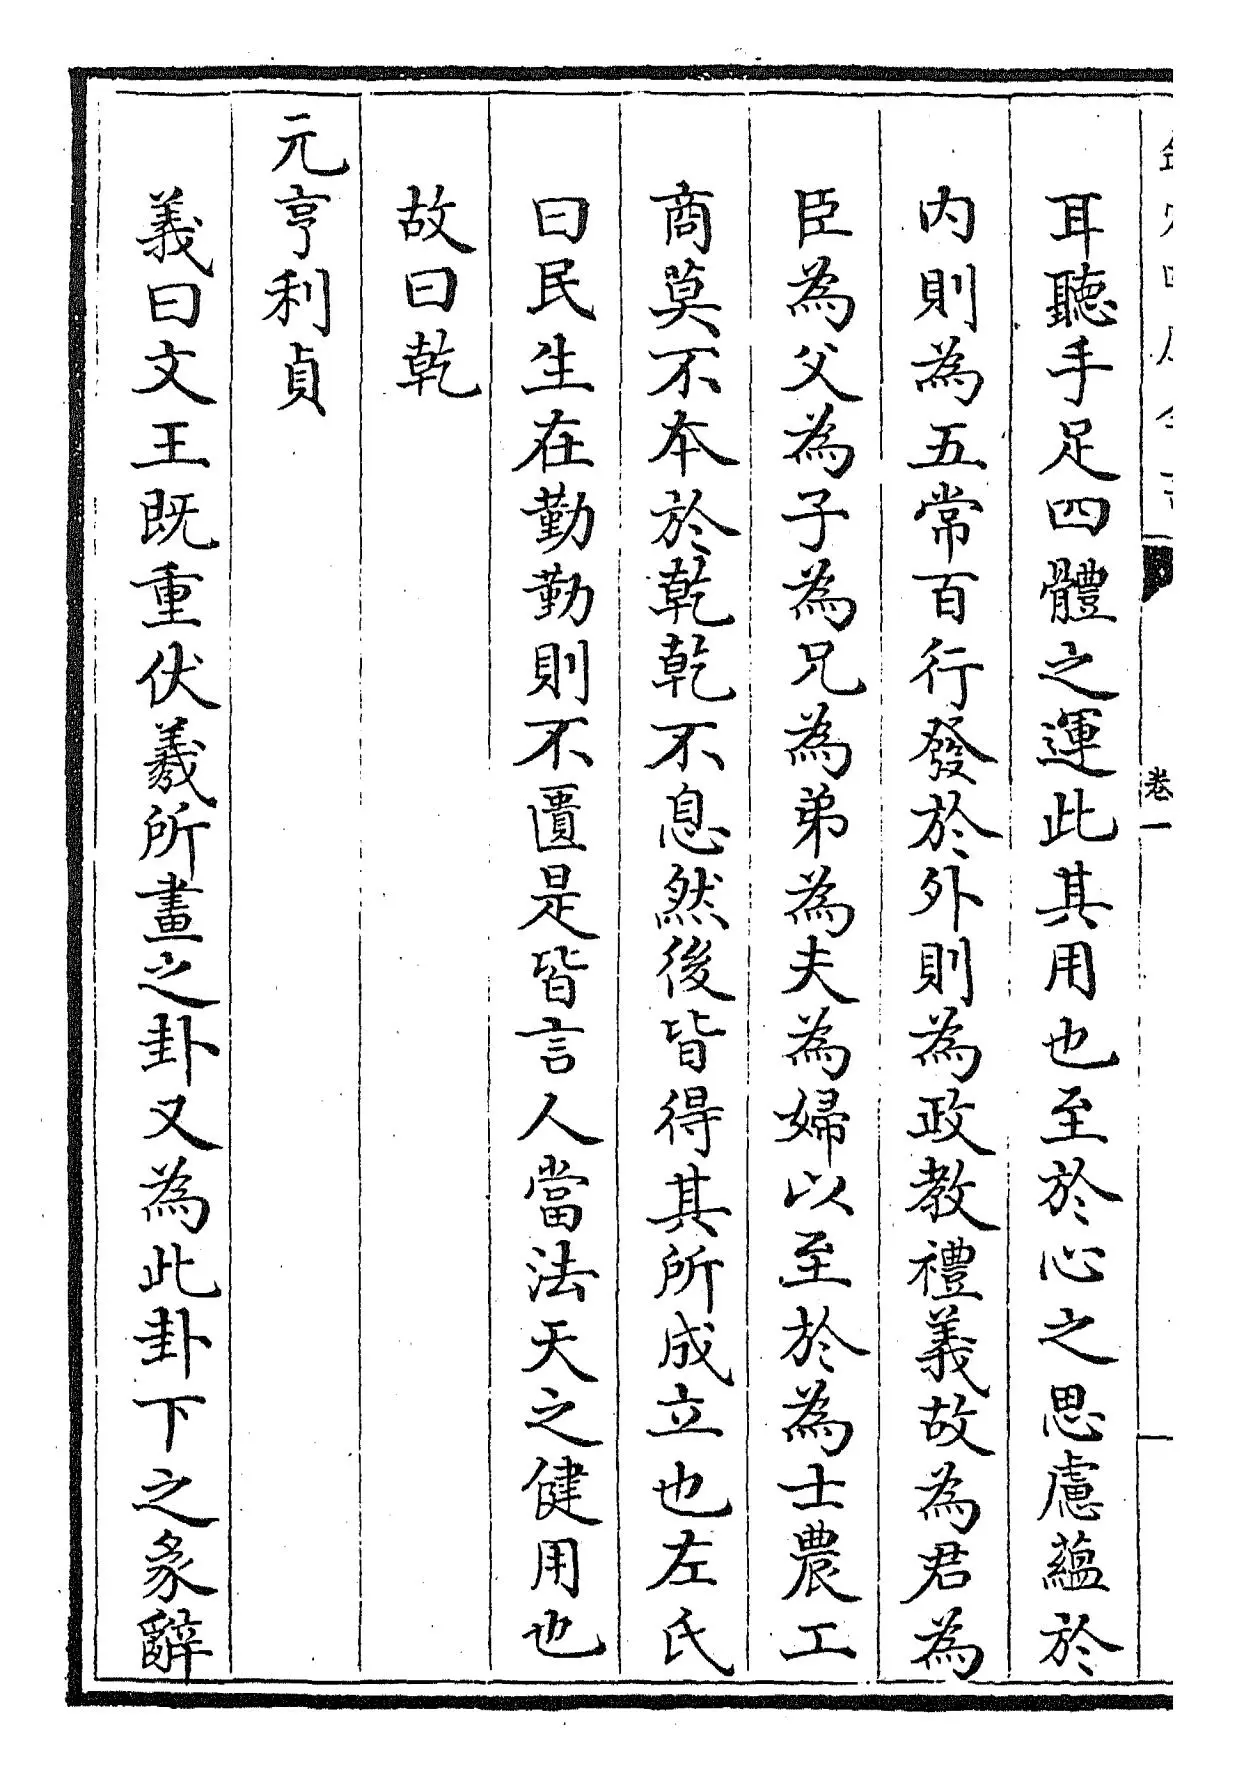 耳聽手足四體之運此其用也至於心之思慮蘊於
内則為五常百行發於外則為政教禮義故為君為
臣為父為子為兄為弟為夫為婦以至於為士農工
商莫不本於乾乾不息然後皆得其所成立也左氏
曰民生在勤勤則不匱是皆言人當法天之健用也
故曰乾
元亨利貞
義曰文王既重伏羲所畫之卦又為此卦下之彖辭
卷一